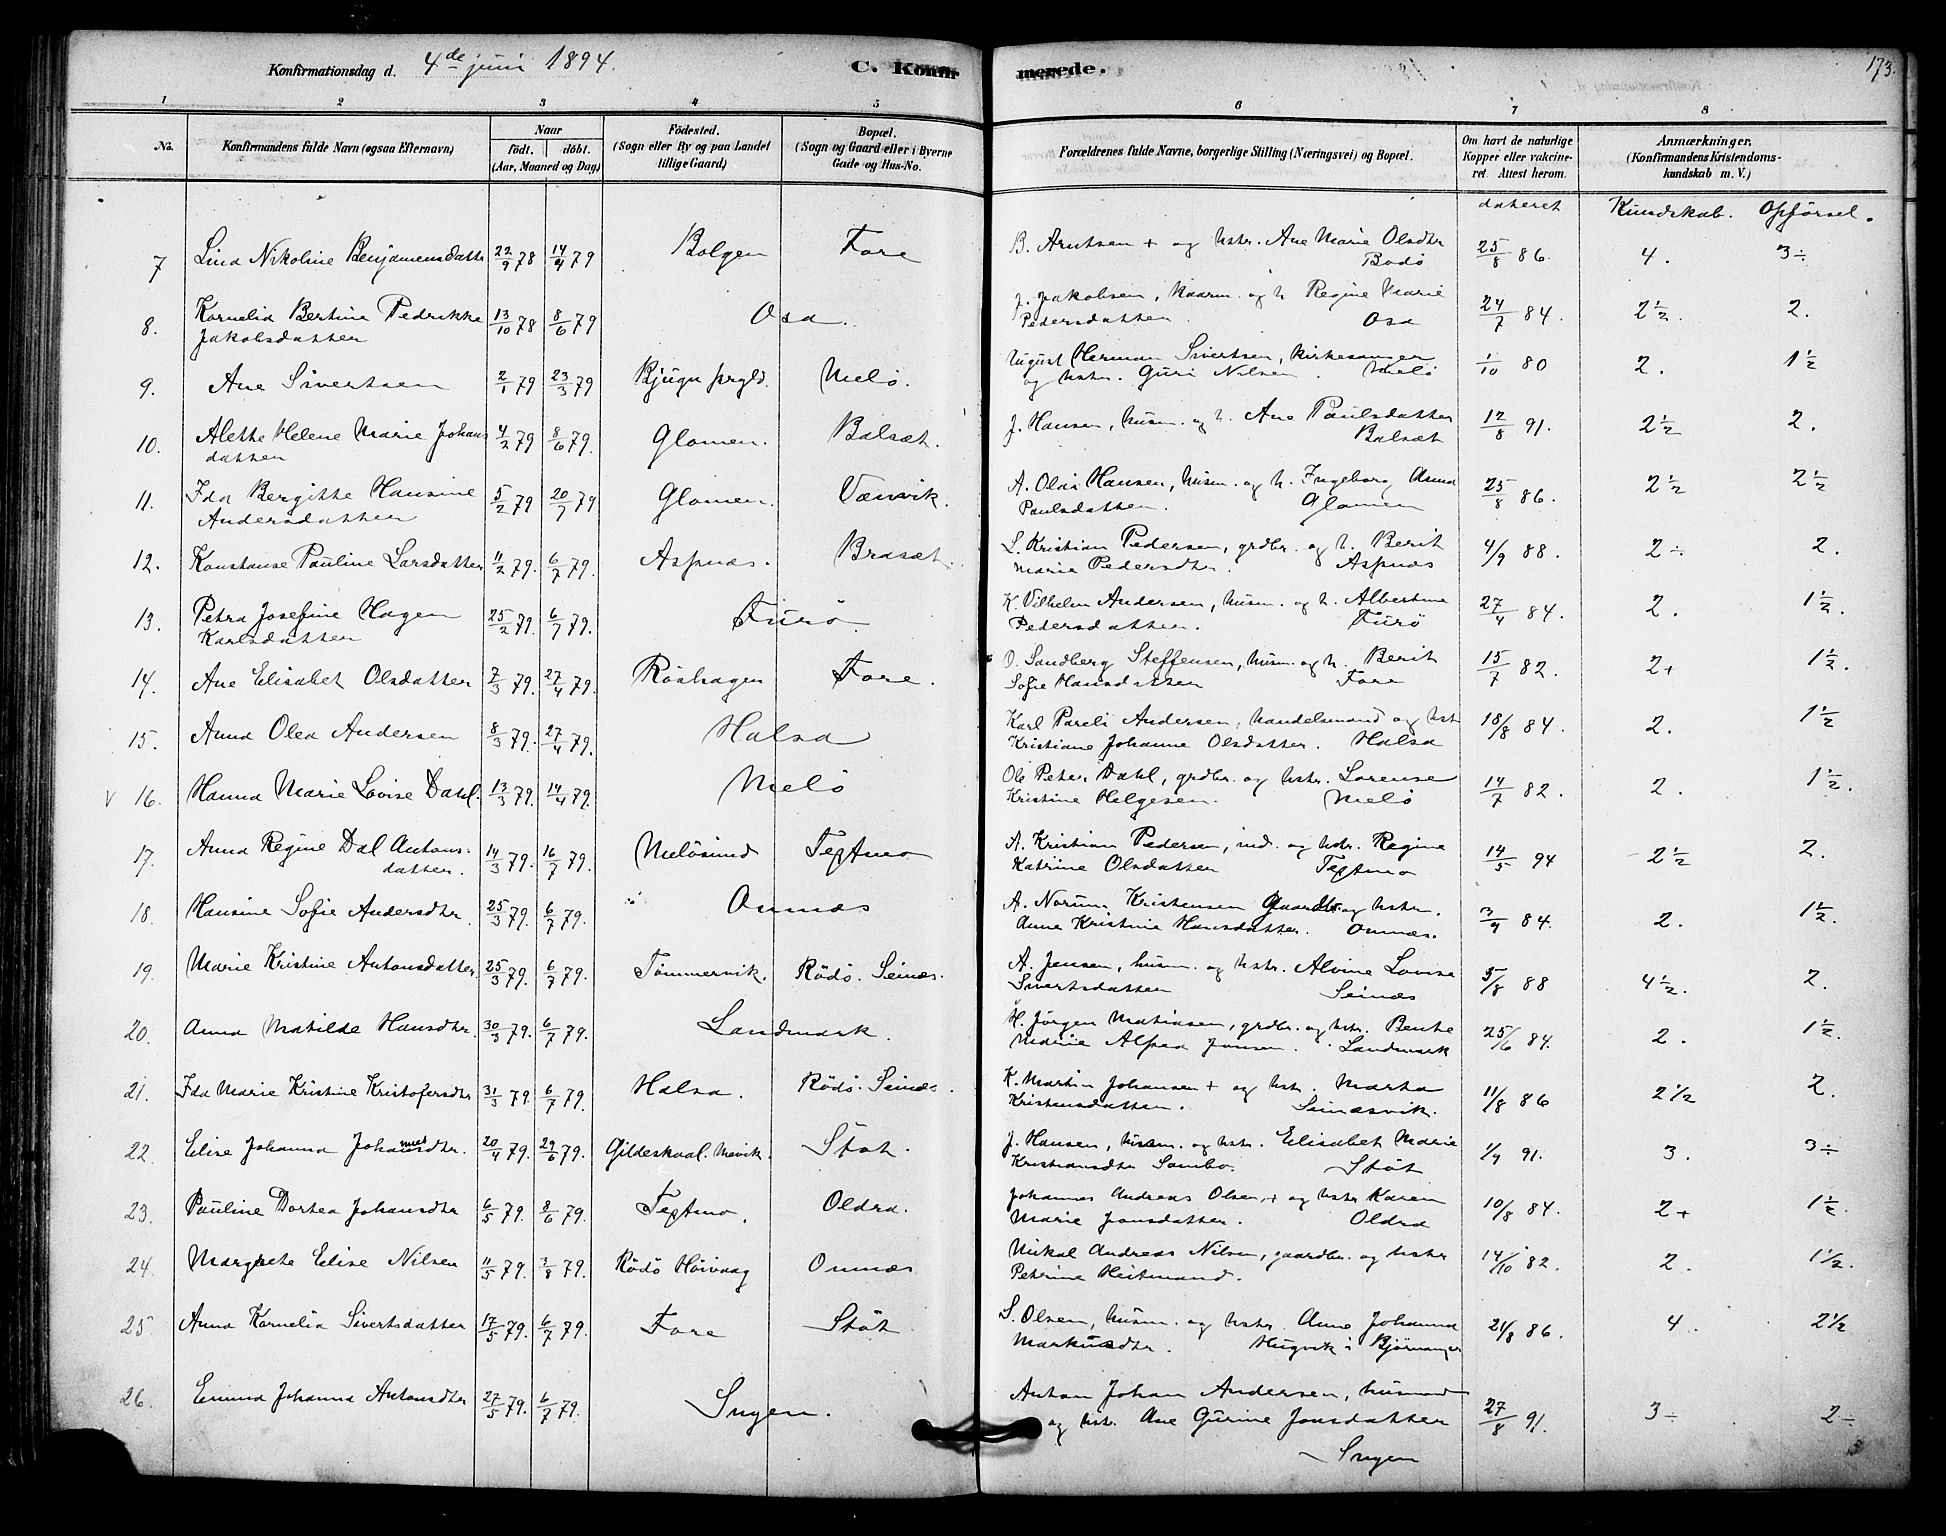 173.
Konfirmationsdag d. 4de juni 1894. C. Konfir- merede.
1 2 3 4 5 6 7 8
No. Konfirmandens fulde Navn (ogsaa Efternavn) Naar født. døbt. (Aar, Maaned og Dag) Fødested. (Sogn eller By og paa Landet tillige Gaard) Bopæl. (Sogn og Gaard eller i Byerne Gade og Hus-No. Forældrenes fulde Navne, borgerlige Stilling (Næringsvei) og Bopæl. Om havt de naturlige Kopper eller vakcineret Attest herom. Anmærkninger, (Konfirmandens Kristendomskundskab m. V.)
dateret Kundskab. Opførsel.
7 Lina Nikoline Benjamensdatter 22/9 78 14/4 79 Bolgen Fore B. Arntsen + og hstr. Ane Marie Olsdtr Bodø 25/8 86. 4. 3÷
8. Kornelia Bertine Pedrikke 13/10 78 8/6 79 Osa. J. Jakobsen, kaarm. og h. Regine Marie 24/7 84. 2½. 2.
Jakobsdatter Pedersdatter. Osa
9. Ane Sivertsen 2/1 79 23/3 79 Bjugn prgld. Melø. August Herman Sivertsen, kirkesanger 1/10 80 2. 1½
og hstr. Guri Nilsen. Melø
10. Alette Helene Marie Johans 4/2 79 8/6 79. Glomen. Balsæt. J. Hansen, husm. og h. Ane Paulsdatter 12/8 91. 2½ 2.
datter Balsæt
11. Ida Bergitte Hansine 5/2 79 20/7 79 Glomen. Vænvik. A. Olai Hansen, husm. og h. Ingeborg Anna 25/8 86. 2½ 2½
Andersdatter Paulsdatter. Glomen
12. Konstanse Pauline Larsdatter 11/2 79. 6/7 79. Aspnæs. Brasæt. L. Kristian Pedersen, grdbr. og h. Berit 4/9 88. 2÷ 2.
Marie Pedersdtr. Aspnæs
13. Petra Josefine Hagen 25/2 79. 6/7 79. Furø. K. Vilhelm Andersen, husm. og h. Albertine 27/4 84. 2. 1½.
Karlsdatter Pedersdatter. Furø
14. Ane Elisabet Olsdatter 7/3 79. 27/4 79. Røshagen Fore. O. Sandberg Steffensen, husm. og h. Berit 15/7 82. 2+ 1½.
Sofie Hansdatter Fore
15. Anna Olea Andersen 8/3 79. 27/4 79. Halsa Karl Pareli Andersen, handelsmand og hst 18/8 84. 2. 1½
Kristiane Johanne Olsdatter. Halsa
v 16. Hanna Marie Lovise Dahl. 13/3 79. 14/4 79. Melø Ole Peter Dahl, grdbr. og hstr. Lorense 14/7 82. 2. 1½.
Kristine Helgesen. Melø
17. Anna Regine Dal Antons- 14/3 79. 16/7 79. Meløsund Teptmo A. Kristian Pedersen, ind. og hstr. Regine 14/5 94 2½ 2.
datter. Katrine Olsdatter Teptmo
18. Hansine Sofie Andersdtr. 25/3 79. 6/7 79. Onnæs A. Norum Kristensen Gaardbr. og hstr. 3/9 84. 2. 1½.
Anne Kristine Hansdatter. Onnæs.
19. Marie Kristine Antonsdatter 25/3 79. 6/7 79. Tømmervik. Rødø. Seinæs. A. Jensen, husm. og hstr. Alvine Lovise 5/8 88 4½. 2.
Sivertsdatter Seinæs
20. Anna Matilde Hansdtr. 30/3 79. 6/7 79. Landmark. H. Jørgen Matiasen, grdbr. og hstr. Bente 25/6 84. 2. 1½.
Marie Alfrea Jonsen. Landmark
21. Ida Marie Kristine Kristofersdtr 31/3 79. 6/7 79. Halsa. Rødø. Seinæs. K. Martin Johansen + og hst. Marta 11/8 86 2½ 2.
Kristensdatter. Seinæsvik.
22. Elise Johanna Johannesdtr. 20/4 79. 29/6 79. Gildeskaal. Mevik. Støt. J. Hansen, husm. og hstr. Elisabet Marie 1/9 91. 3. 3÷
Kristiansdtr Sambo. Støt
23. Pauline Dortea Johansdtr 6/5 79. 8/6 79. Teptmo. Oldra. Johannes Andreas Olsen, + og hstr Karen 10/8 84. 2+ 1½.
Marie Jonsdatter. Oldra
24. Margrete Elise Nilsen 11/5 79. 3/8 79. Rødø Høivaag Onnæs Mikal Andreas Nilsen, gaardbr. og hstr 14/10 82. 2. 1½.
Peterine Heitmand.
25 Anna Kornelia Sivertsdatter 17/5 79. 6/7 79. Fore Støt S. Olsen, husm. og hstr. Anne Johanna 21/8 86. 4. 2½
Markusdtr. Hugvik i Bjørnanger
26. Emma Johanna Antonsdtr 27/5 79. 6/7 79. Ingen. Anton Johan Andersen, husmand 27/8 91. 3÷ 2÷
og hst. Ane Gurine Jonsdatter
Ingen